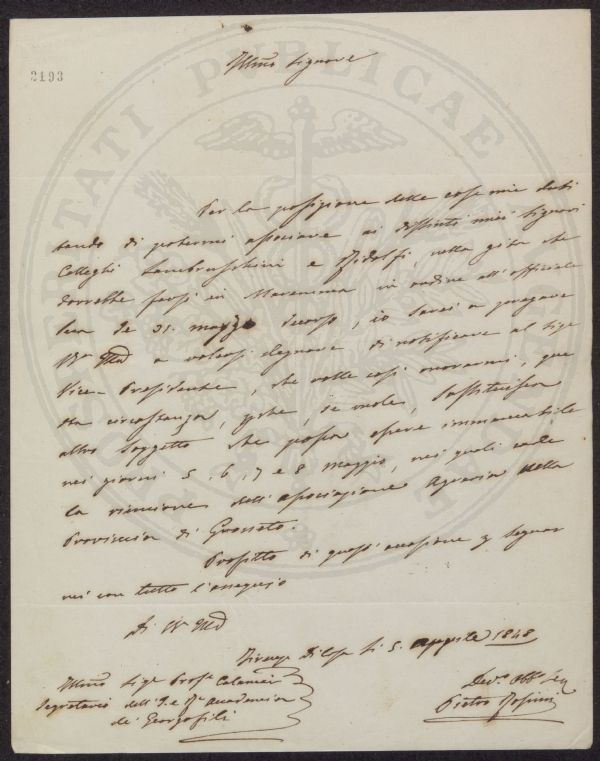 2193
Illmo Signore
Per la posizione delle cose mie dubi
tando di potermi associare ai distinti miei Signori
Colleghi Lambruschini e Ridolfi, nella gita che
dovrebbe farsi in Maremma in ordine all'officiale
Sua de 31. marzo decorso, io sarei a pregare
V. a volersi degnare di notificare al Sigr
Vice-Presidente, che volle così onorarmi, que
sta circostanza, perchè, se vuole, sostituisca
altro soggetto che possa essere immancabile
nei giorni 5, 6, 7 e 8 maggio, nei quali cade
la riunione dell'associazione Agraria della
Provincia di Grosseto.
Profitto di quest'occasione per segnar
mi con tutto l'ossequio
Di V.
Di Casa li 5. aprile 1848
Illmo Sigr Profr Calamai
Segretario dell'I. e R. Accademia
de' Georgofili
Pietro
PROSPERITATI PUBLICAE